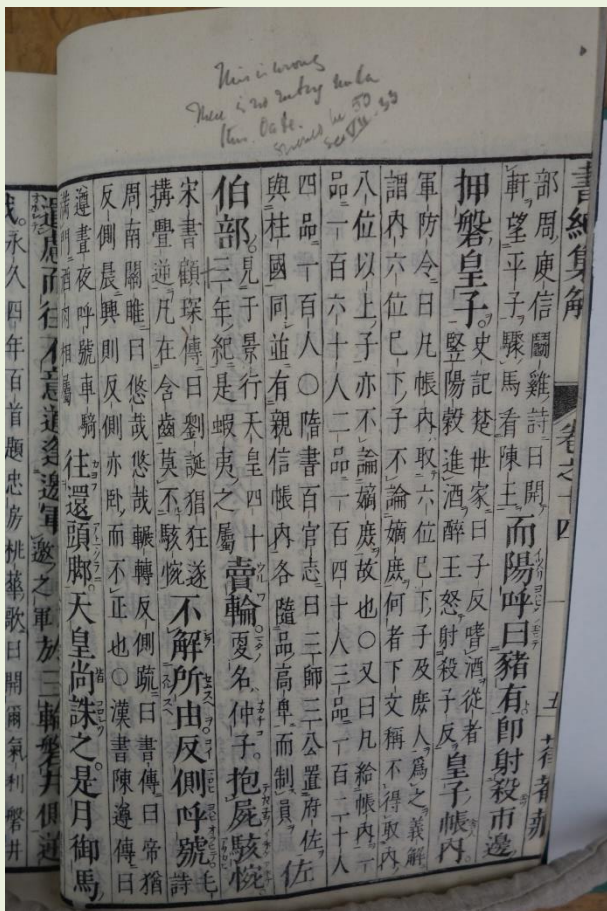 This is wrong
There is no entry under
this date.
should be 50
書紀集解 卷之十四 五
部周庾信鬪雞詩曰開
軒望平子驟馬看陳王
而陽呼曰豬有卽射殺市邊
押磐皇子。
史記楚世家曰子反嗜酒從者
豎陽穀進酒醉王怒射殺子反
皇子帳內
軍防令曰凡帳內取六位已下子及庶人爲之義解
謂內六位已下子不論嫡庶何者下文稱不得取內
八位以上子亦不論嫡庶故也○又曰凡給帳內一
品一百六十人二品一百四十人三品一百二十人
四品一百人○隋書百官志曰三師三公置府佐
與柱國同並有親信帳內各隨品高卑而制員
佐
伯部
見于景行天皇四十
三年紀是蝦夷之屬
賣輪
更名仲子
抱屍駭惋
宋書顧琛傳曰劉誕猖狂遂
搆釁逆凡在含齒莫不駭惋
不解所由反側呼號
毛詩
周南關雎曰悠哉悠哉輾轉反側疏曰書傳曰帝猶
反側晨興則反側亦臥而不正也○漢書陳遵傳曰
遵晝夜呼號車騎
滿門酒肉相屬
往還頭脚天皇尚誅之是月御馬
遺慮而往不意道逢邀軍
於三輪磐井側逆
哉。永久四年百首題忠房桃華歌曰開爾氣利磐井